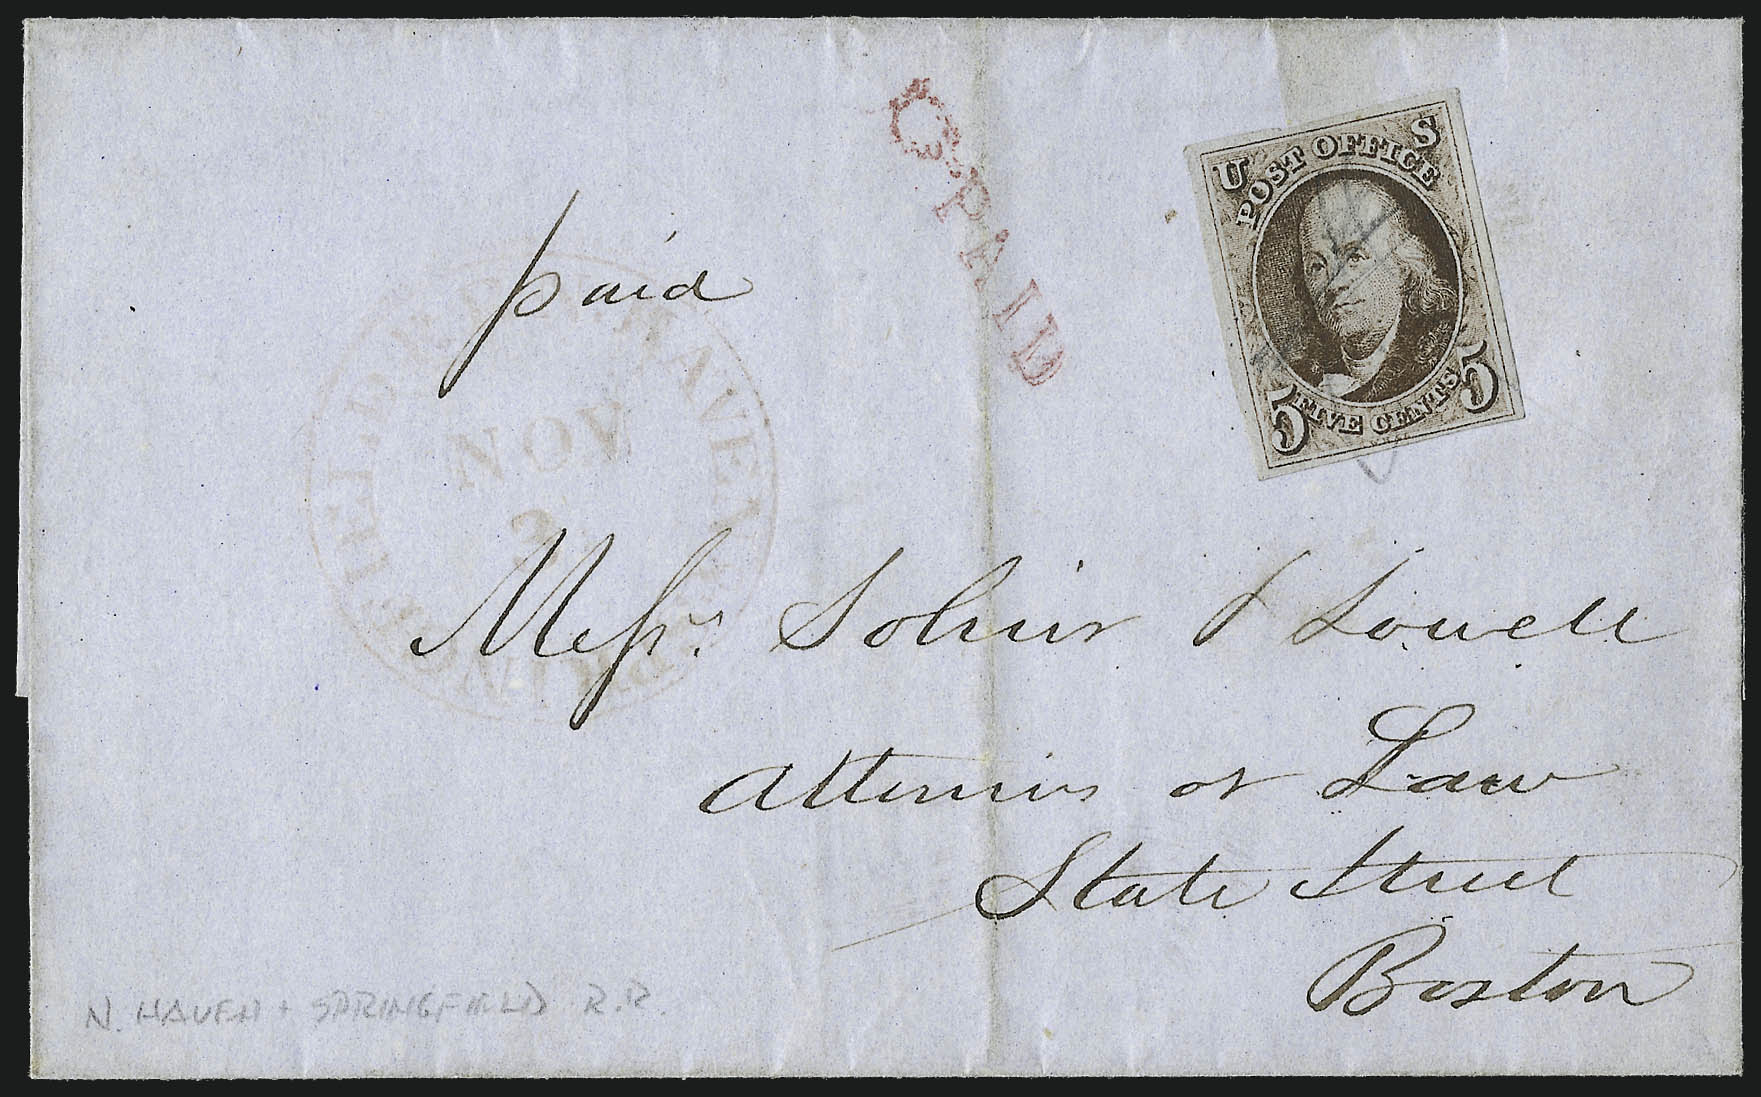 PAID
U S
POST OFFICE
5 FIVE CENTS 5
paid
NEW HAVEN & SPRINGFIELD
NOV
2
Messrs. Sohier & Lowell
Attornies at Law
State Street
Boston
N. HAVEN + SPRINGFIELD R.R.